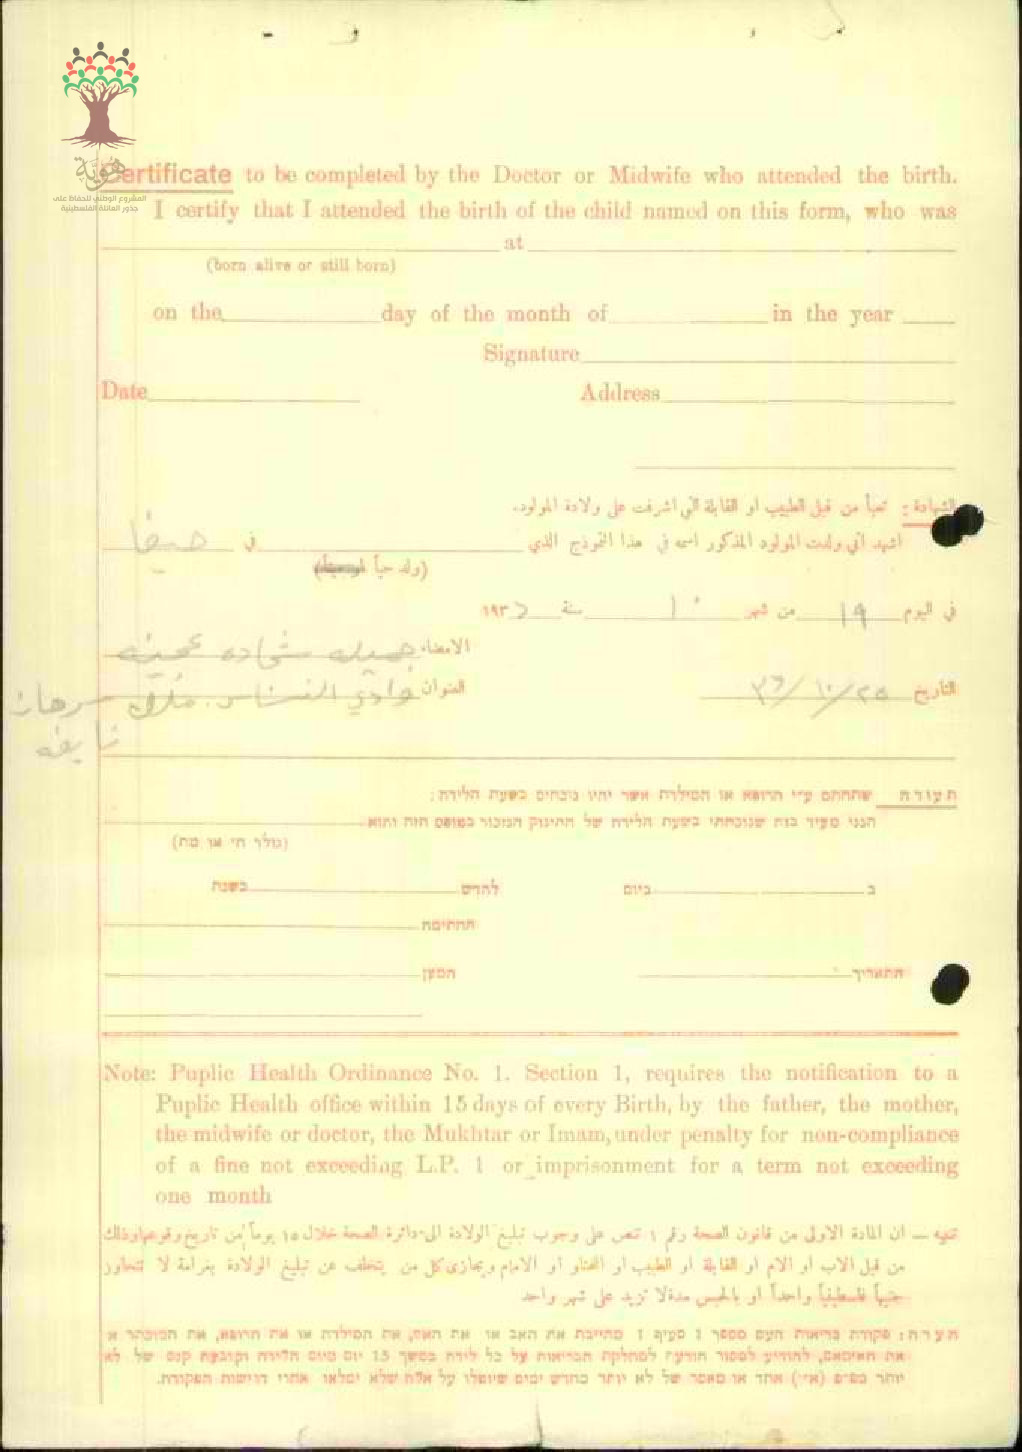 هوية
المشروع الوطني للحفاظ على
جذور العائلة الفلسطينية
Certificate to be completed by the Doctor or Midwife who attended the birth.
I certify that I attended the birth of the child named on this form, who was
at
(born alive or still born)
on the day of the month of in the year
Signature
Date Address
الشهادة : تعبأ من قبل الطبيب او القابلة التي اشرفت على ولادة المولود.
اشهد اني ولدت المولود المذكور اسمه في هذا النموذج الذي في حيفا
(ولد حياً او ميتاً)
في اليوم ١٩ من شهر ١٠ سنة ١٩٣
الامضاء جميلة شحاده
التاريخ ٢٥/١٠/٣٦ العنوان وادي النسناس
תעודה שתחתם ע״י הרופא או המילדת אשר יהיו נוכחים בשעת הלידה :
הנני מעיד בזה שנוכחתי בשעת הלידה של התינוק הנזכר בטופס הזה והוא
(נולד חי או מת)
ב ביום לחדש בשנת
החתימה
התאריך המען
Note: Puplic Health Ordinance No. 1. Section 1, requires the notification to a
Puplic Health office within 15 days of every Birth, by the father, the mother,
the midwife or doctor, the Mukhtar or Imam, under penalty for non-compliance
of a fine not exceeding L.P. 1 or imprisonment for a term not exceeding
one month
تنبيه — ان المادة الاولى من قانون الصحة رقم ١ تنص على وجوب تبليغ الولادة الى دائرة الصحة خلال ١٥ يوماً من تاريخ وقوعها وذلك
من قبل الاب او الام او القابلة او الطبيب او المختار او الامام ويجازى كل من يتخلف عن تبليغ الولادة بغرامة لا تتجاوز
جنيهاً فلسطينياً واحداً او بالحبس مدة لا تزيد على شهر واحد
הערה : פקודת בריאות העם מספר 1 סעיף 1 מחייבת את האב או את האם, את המילדת או את הרופא, את המוכתר או
את האימאם, להודיע למשרד מחלקת הבריאות על כל לידה במשך 15 יום מיום הלידה וקובעת קנס של לא
יותר